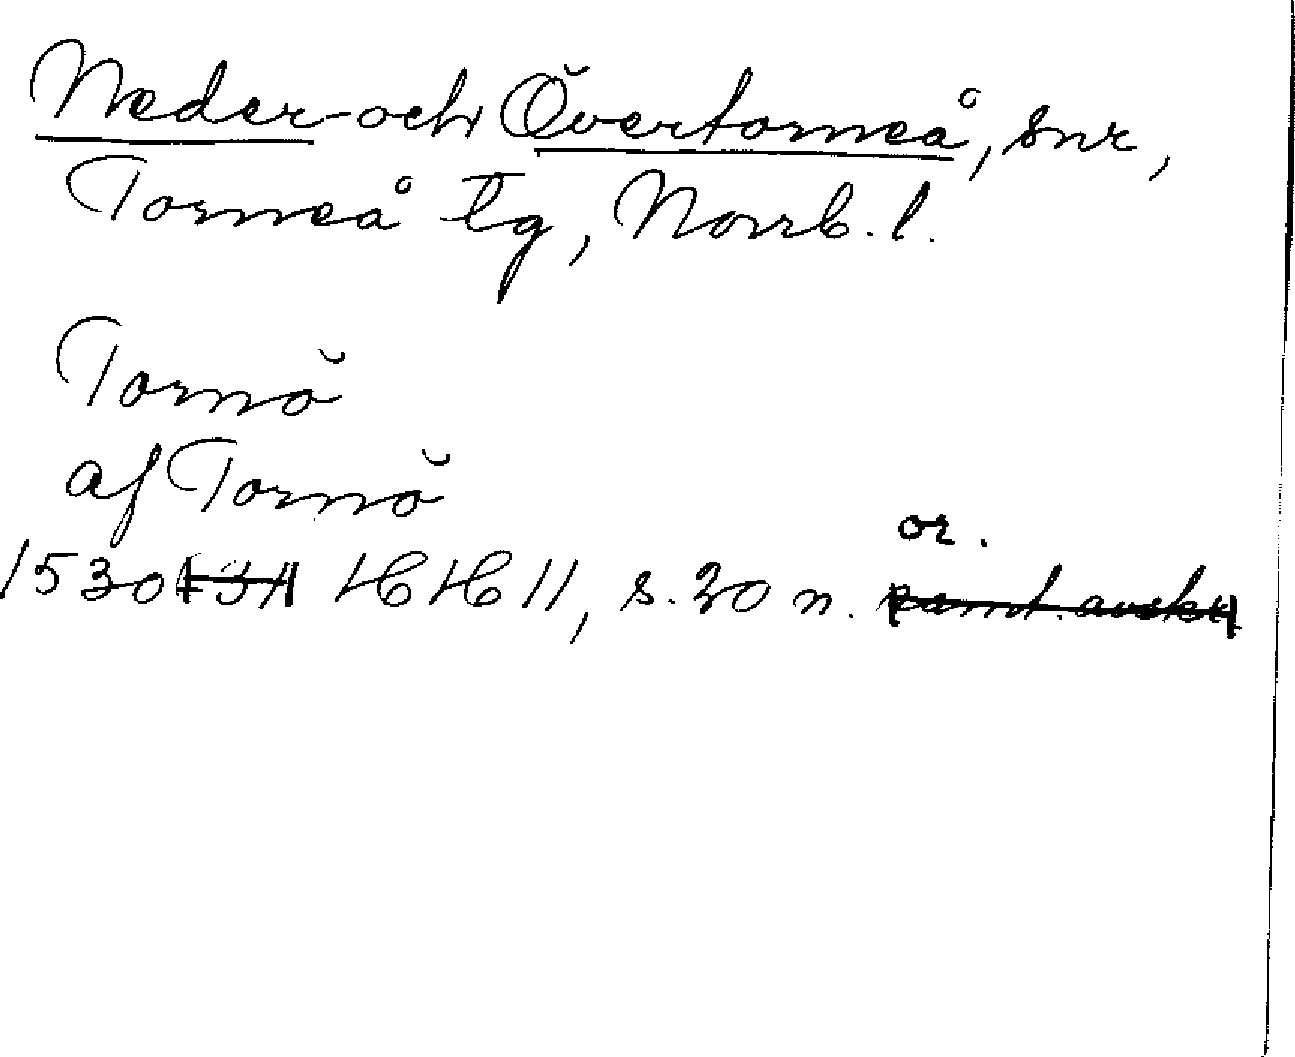 Neder- och Övertorneå, snr,
Torneå tg, Norrb. l.
Tornö
af Tornö
or.
1530 HH 11, s. 30 n. samt. avskr